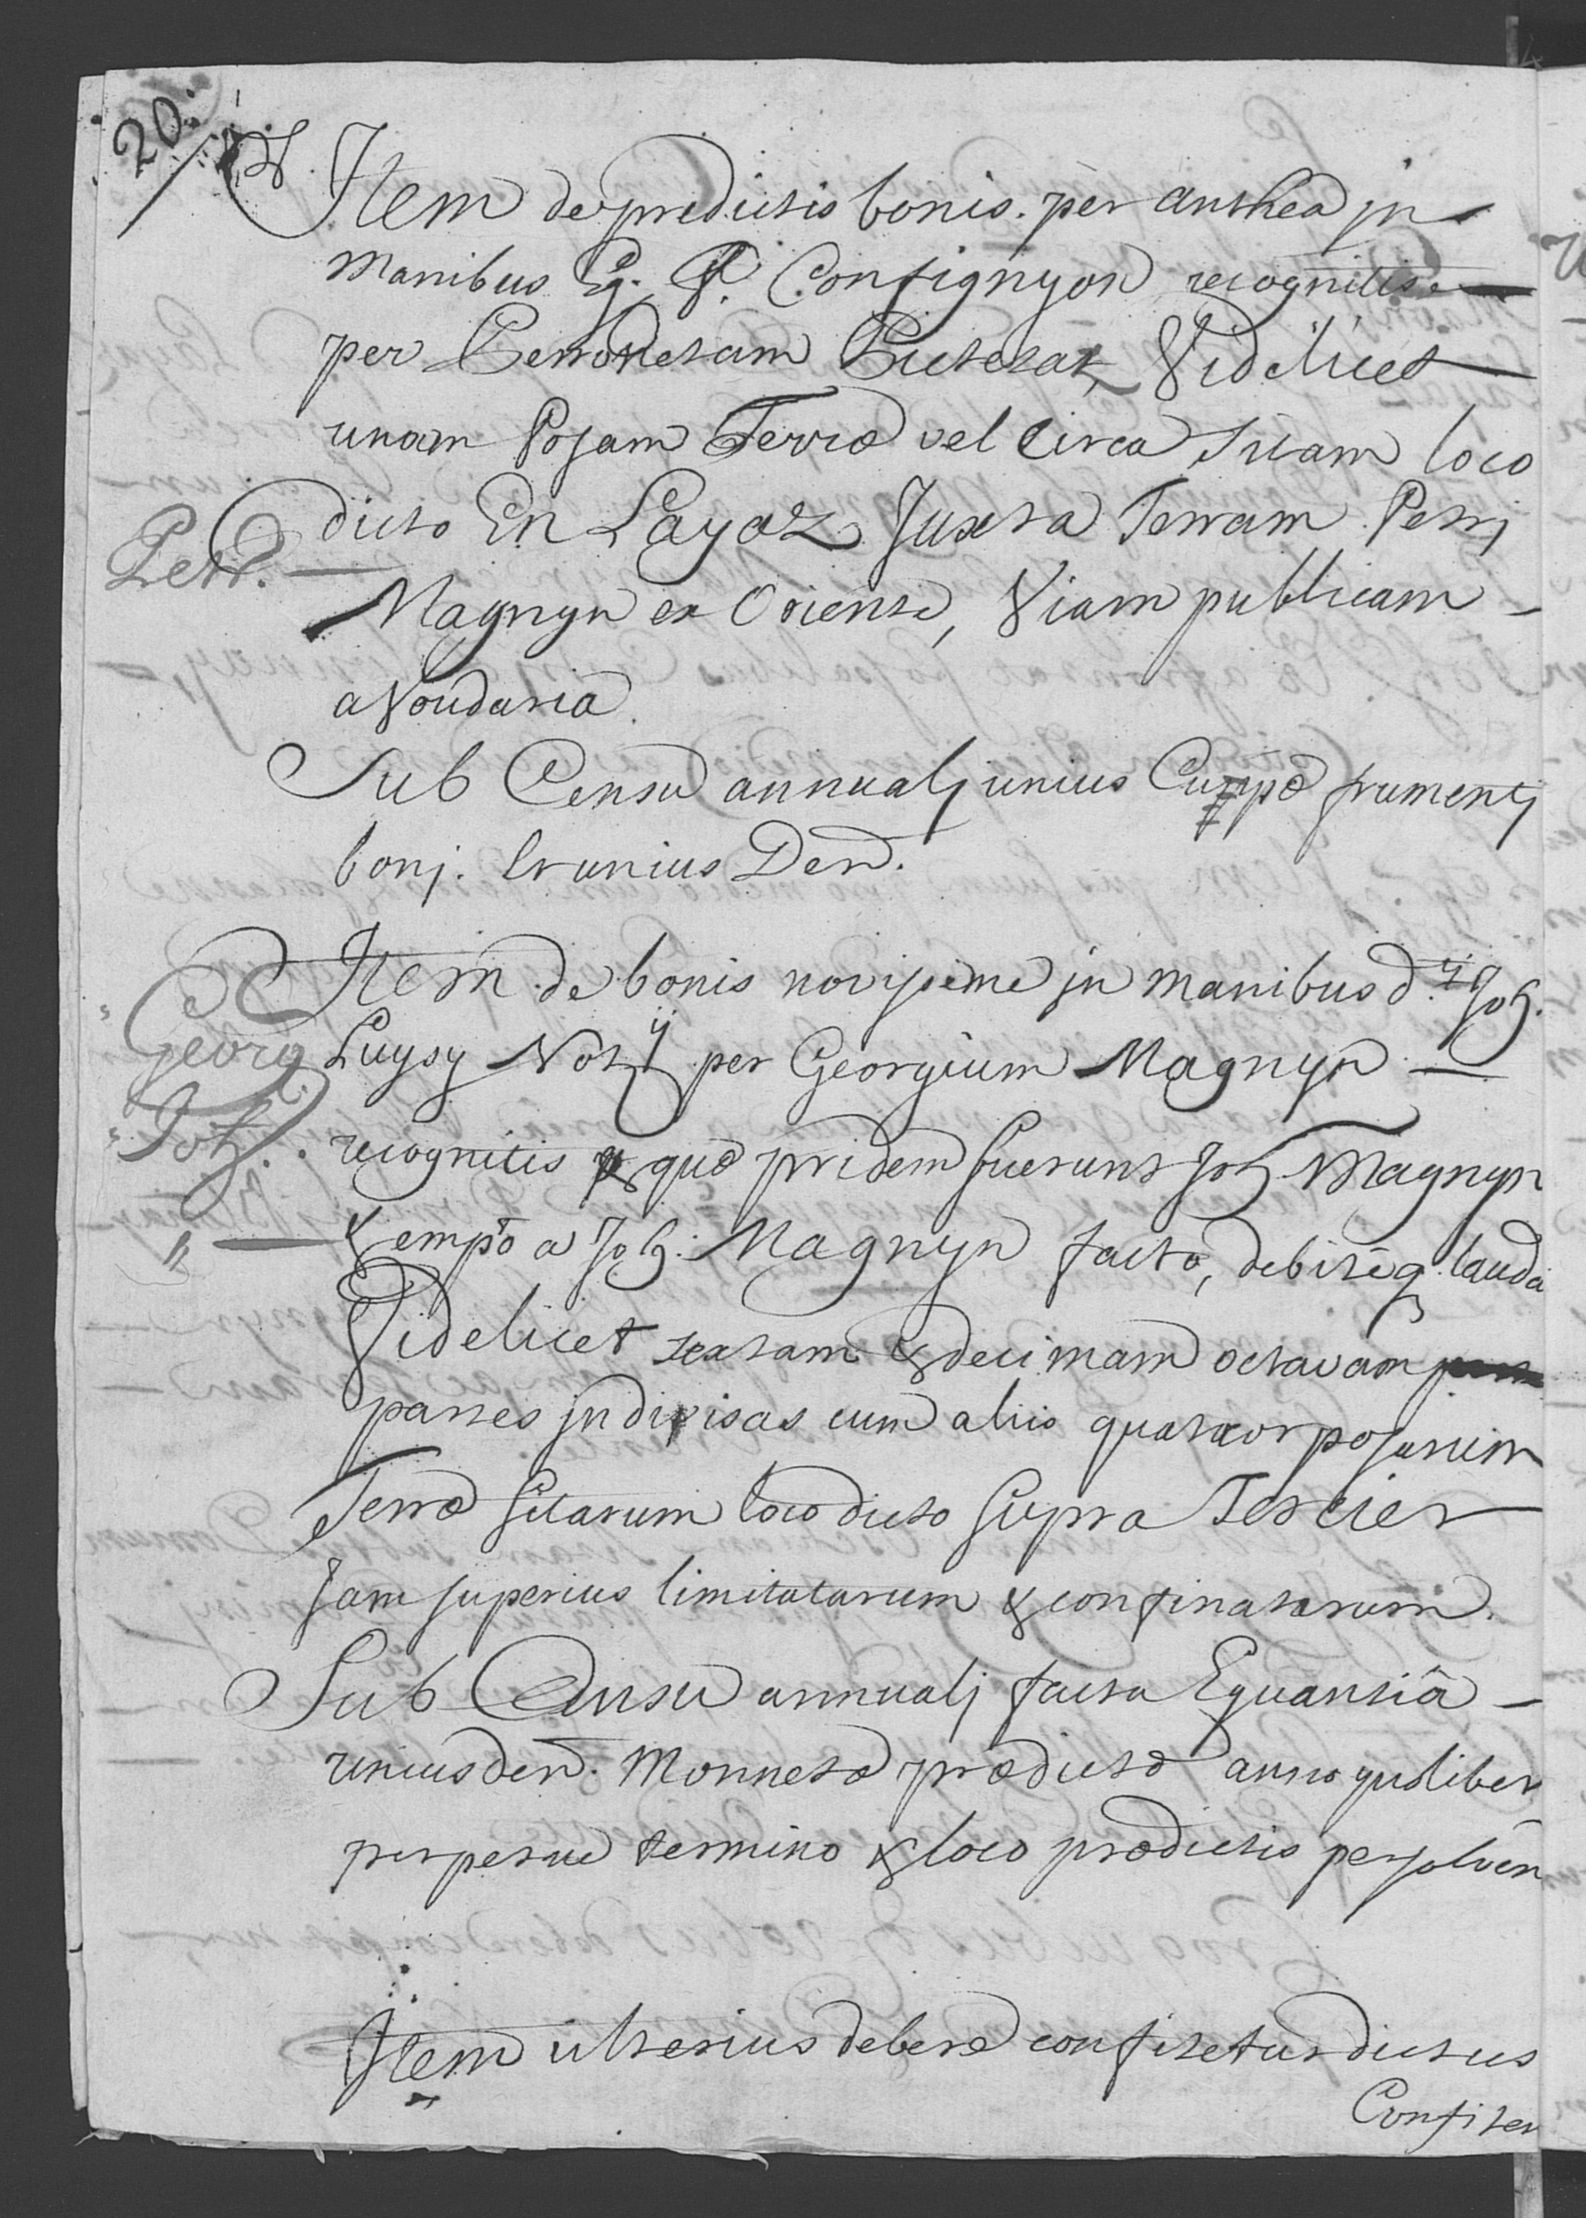 20.
Item de predictis bonis. per anthea jn
Manibus Eg. F. Confignyon recognitis.
per Perronetam Pictetaz, Videlicet
unam Posam Terræ vel circa sitam loco
Perr. dicto En Layaz Juxta Terram Petrj
Magnyn ex Oriente, Viam publicam
a Voudaria.
Sub Censu annualj unius Cuppæ frumentj
bonj. Et unius Den.
Georg. Item de bonis novissime jn manibus d. Joh.
Luysy Not per Georgium Magnyn
Joh. recognitis quæ pridem fuerunt Joh. Magnyn
empto a Joh. Magnyn facto, debiteq. lauda
Videlicet sextam & decimam octavam
partes jndivisas cum aliis quatuor posarum
Terræ sitarum loco dicto supra Tercier
Jam superius limitatarum & confinatarum.
Sub Censu annualj facta Equantiâ
unius den. Monnetæ prædictæ anno quolibet
perpetue termino & loco prædictis persolven
Item ulterius debere confitetur dictus
Confiten